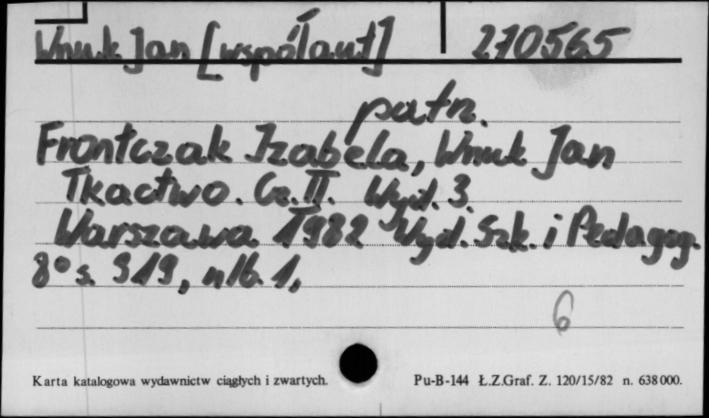 Wnuk Jan [współaut] 210565
patrz.
Frontczak Izabela, Wnuk Jan
Tkactwo. Cz. II. Wyd. 3.
Warszawa 1982 Wyd. Szk. i Pedagog.
8° s. 319, nlb. 1,
6
Karta katalogowa wydawnictw ciągłych i zwartych. Pu-B-144 Ł.Z.Graf. Z. 120/15/82 n. 638000.